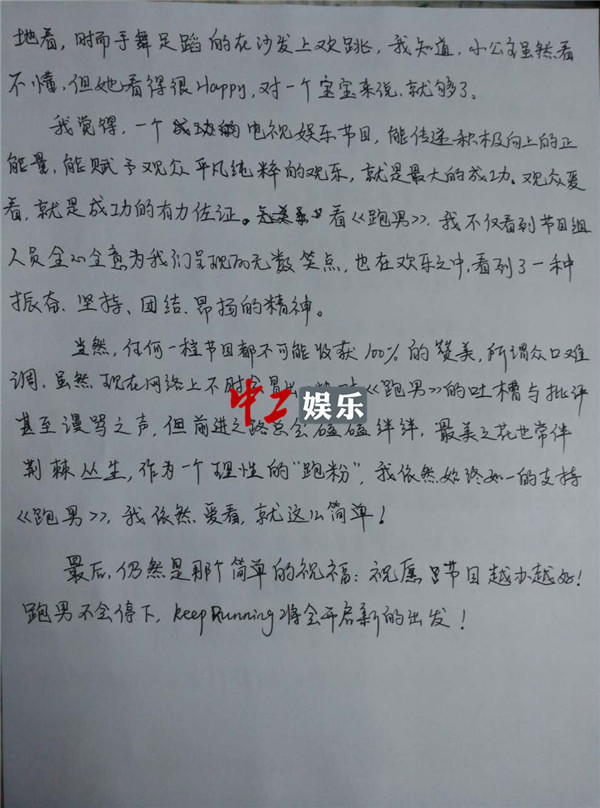 地看，时而手舞足蹈的在沙发上欢跳，我知道，小公主虽然看
不懂，但她看得很Happy，对一个宝宝来说，就够了。
我觉得，一个电视娱乐节目，能传递积极向上的正
能量，能赋予观众平凡纯粹的欢乐，就是最大的成功。观众爱
看，就是成功的有力佐证。看《跑男》，我不仅看到节目组
人员全心全意为我们呈现的无数笑点，也在欢乐之中，看到了一种
振奋、坚持、团结、昂扬的精神。
当然，任何一档节目都不可能收获100%的赞美，所谓众口难
调，虽然现在网络上不时会冒出《跑男》的吐槽与批评
甚至谩骂之声，但前进之路总会磕磕绊绊，最美之花也常伴
荆棘丛生，作为一个理性的“跑粉”，我依然始终如一的支持
《跑男》，我依然爱看，就这么简单！
最后，仍然是那个简单的祝福：祝愿节目越办越好！
跑男不会停下，Keep Running将会开启新的出发！
中工娱乐